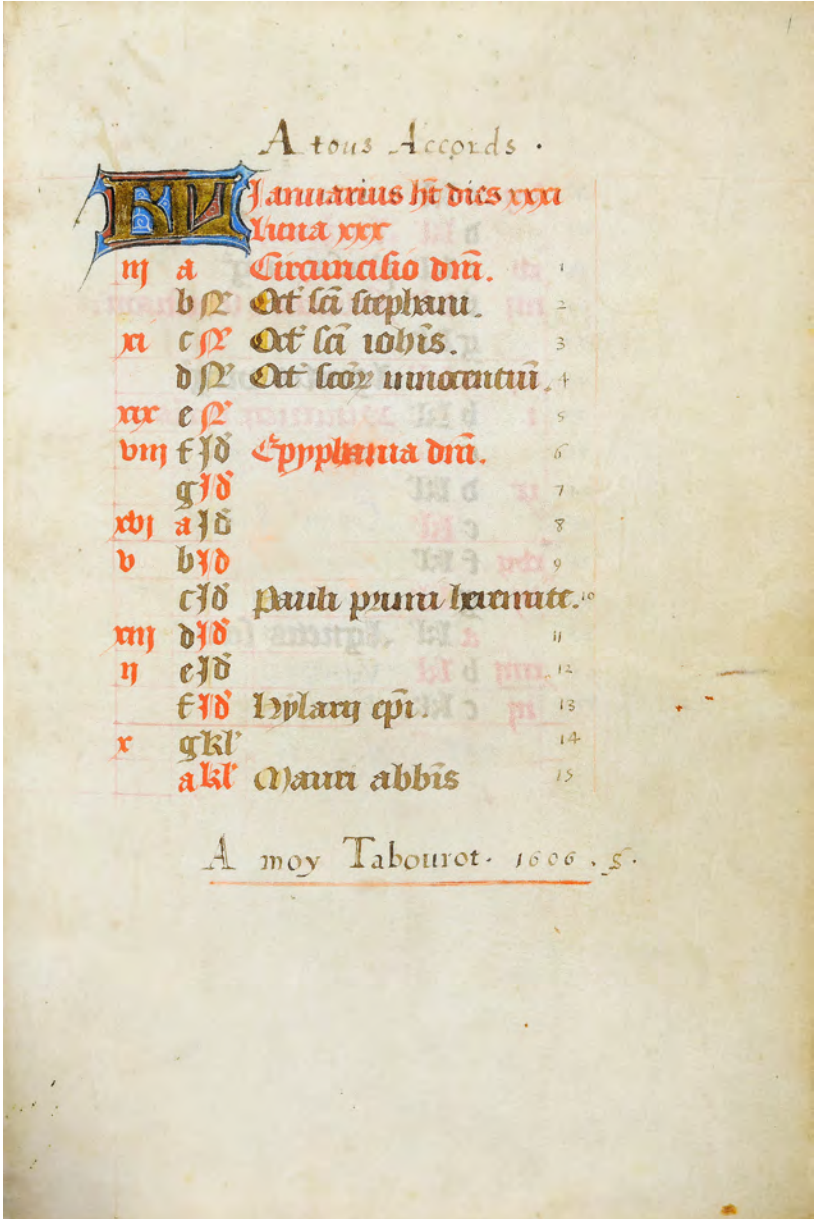 A tous Accords .
KL Januarius hēt dies xxxi
luna xxx
iij a Circuncisio dnī. 1
b N Oct' scī stephani. 2
xi c N Oct' scī iohīs. 3
d N Oct' scōꝝ innocentuī. 4
xix e N 5
viij f Id Epyphania dnī. 6
g Id 7
xvj a Id 8
v b Id 9
c Id Pauli primi heremite. 10
xiij d Id 11
ij e Id 12
f Id Hylarij epī. 13
x g kl' 14
a kl' Mauri abbīs 15
A moy Tabourot. 1606 . g.